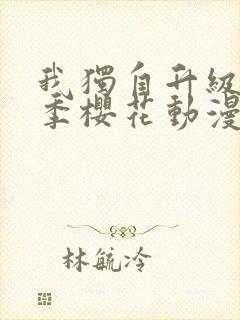 我獨自升級
季櫻花動漫
林毓冷